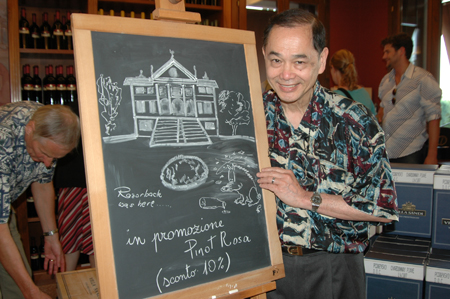 Razorback
was here...
in promozione
Pinot Rosa
(sconto 10%)